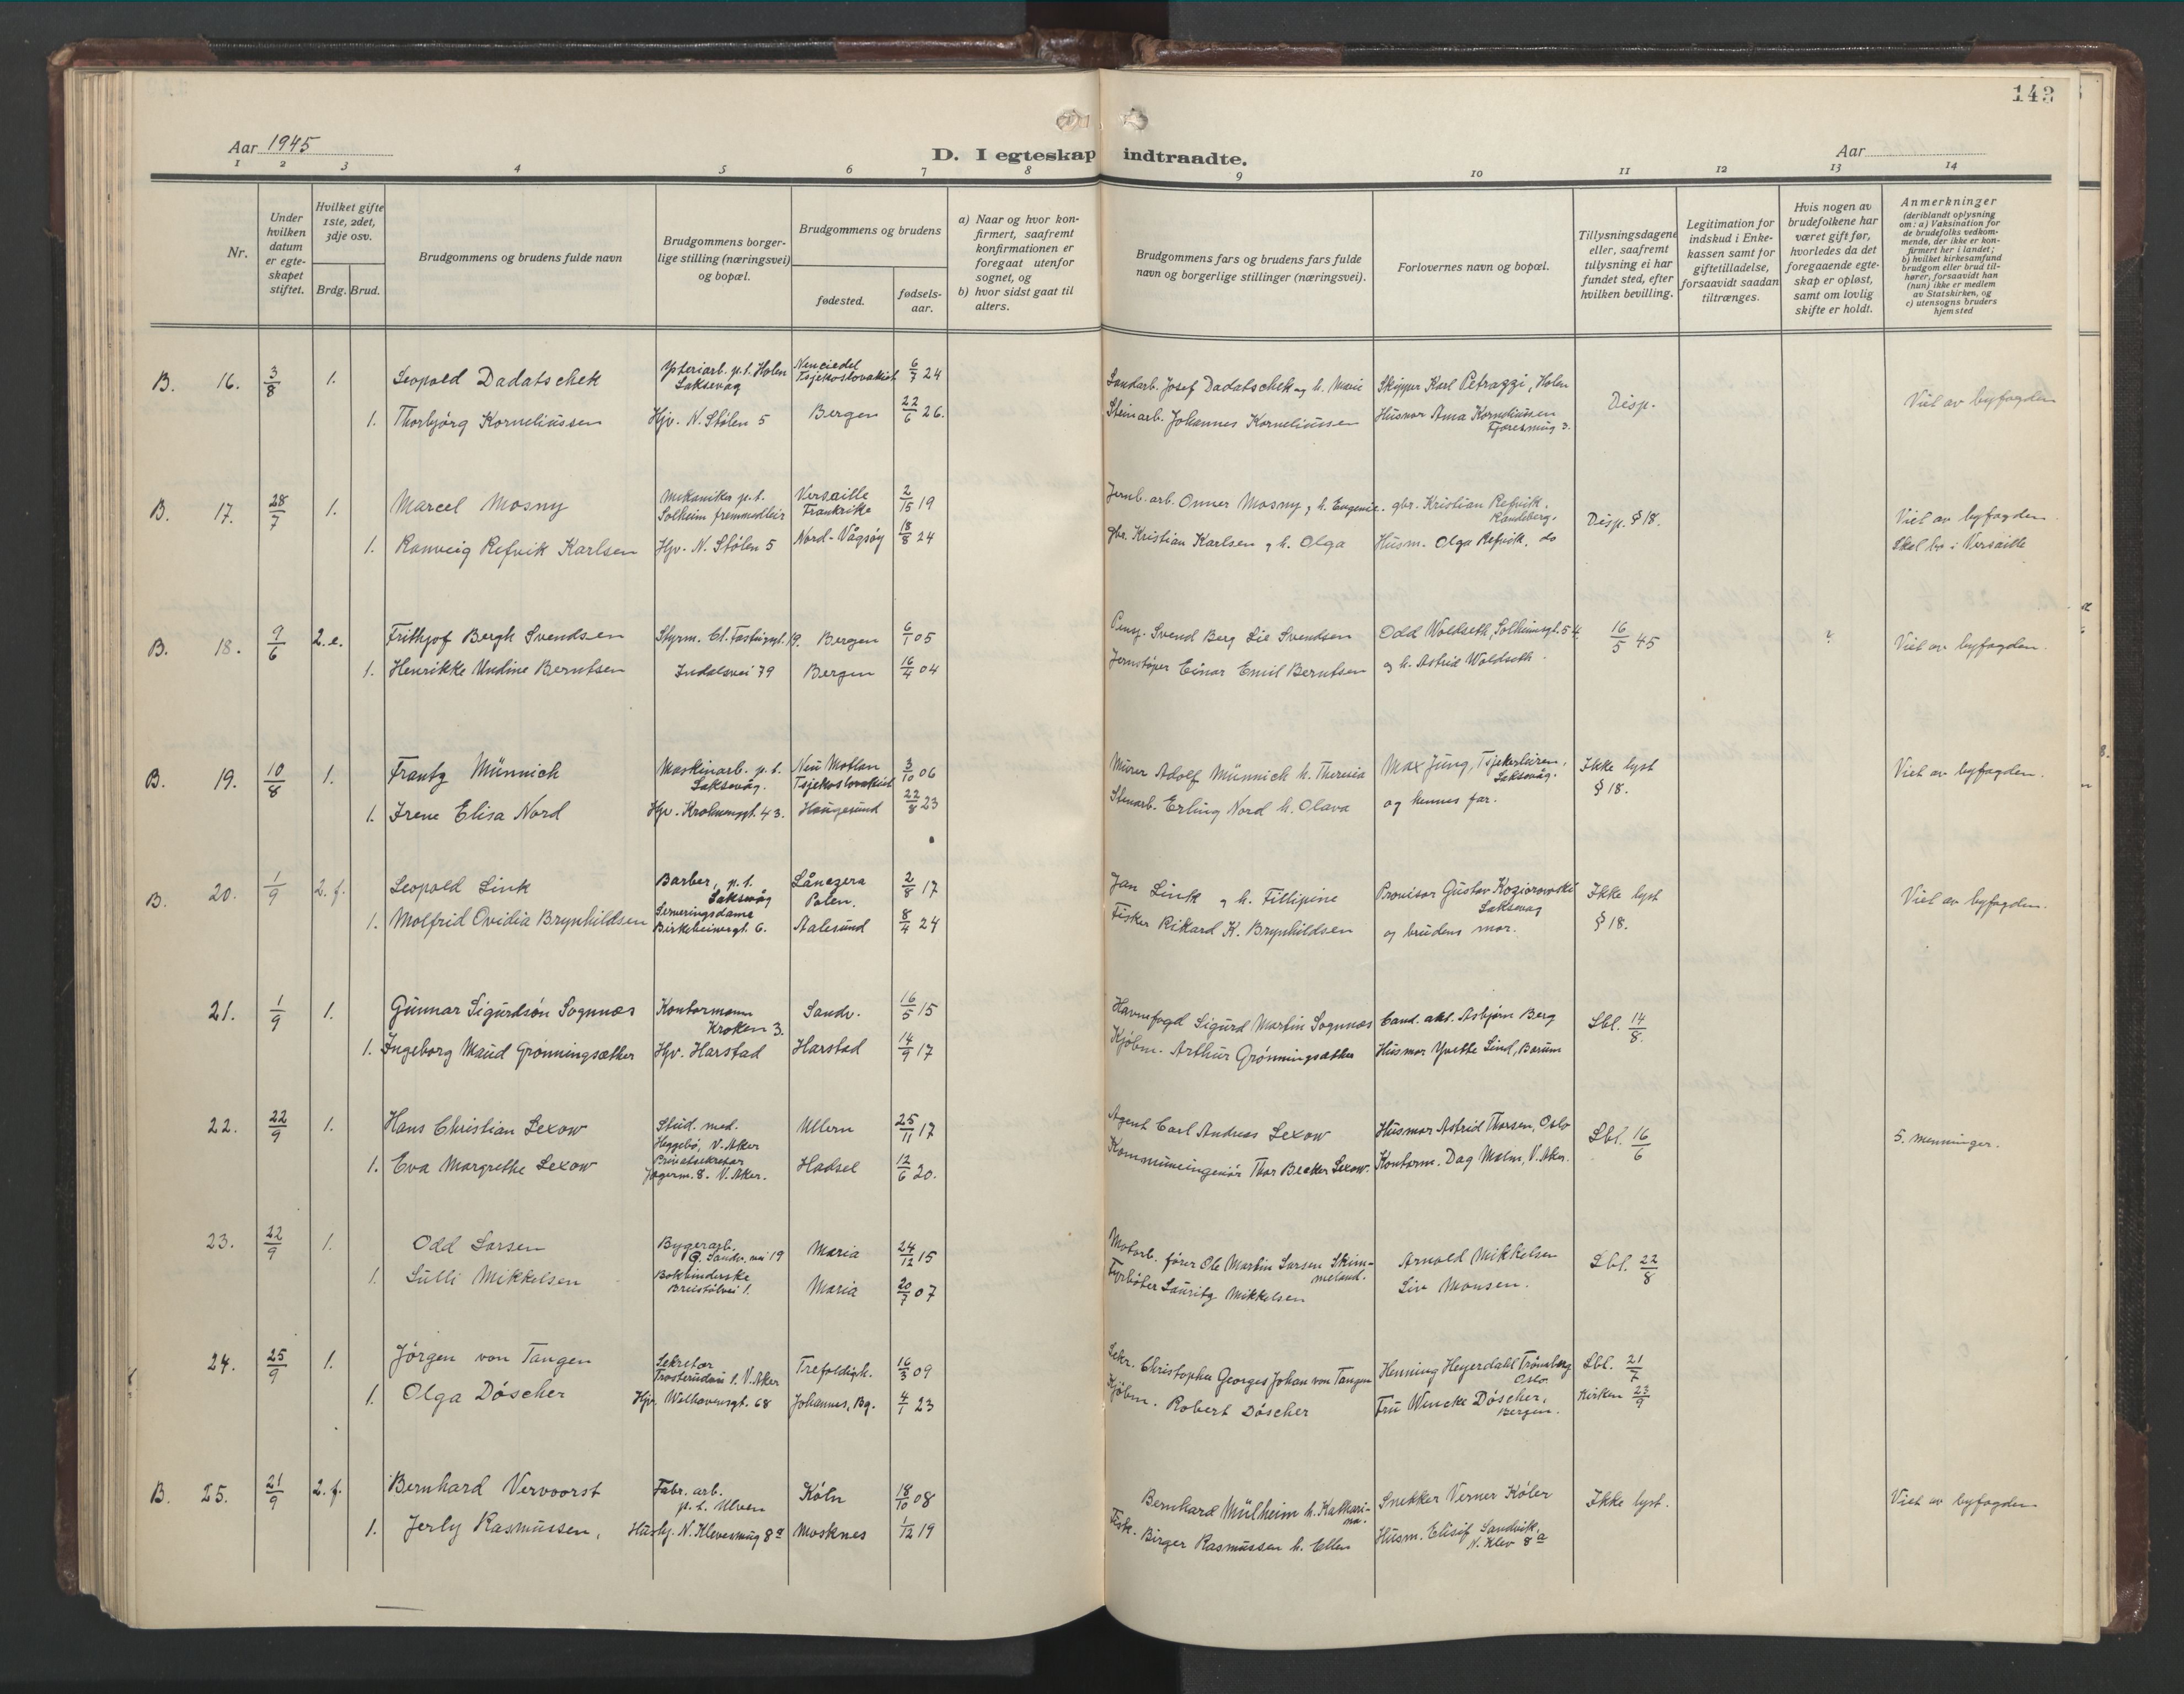 143
Aar 1945
D. I egteskap indtraadte.
Aar
1 2 3 4 5 6 7 8 9 10 11 12 13 14
Nr.
Under hvilken datum er egteskapet stiftet.
Hvilket gifte 1ste, 2det, 3dje osv.
Brdg. Brud.
Brudgommens og brudens fulde navn
Brudgommens borgerlige stilling (næringsvei) og bopæl.
Brudgommens og brudens
fødested.
fødselsaar.
a) Naar og hvor konfirmert, saafremt konfirmationen er foregaat utenfor sognet, og
b) hvor sidst gaat til alters.
Brudgommens fars og brudens fars fulde navn og borgerlige stillinger (næringsvei).
Forlovernes navn og bopæl.
Tillysningsdagene eller, saafremt tillysning ei har fundet sted, efter hvilken bevilling.
Legitimation for indskud i Enkekassen samt for giftetilladelse, forsaavidt saadan tiltrænges.
Hvis nogen av brudefolkene har været gift før, hvorledes da det foregaaende egteskap er opløst, samt om lovlig skifte er holdt.
Anmerkninger
(deriblandt oplysning om: a) Vaksination for de brudefolks vedkommende, der ikke er konfirmert her i landet; b) hvilket kirkesamfund brudgom eller brud tilhører, forsaavidt han (hun) ikke er medlem av Statskirken, og c) utensogns bruders hjemsted
B. 16. 3/8 1. Leopold Dadatschek Ysteriarb. p.t. Holen Laksevåg Neuciedel Tsjekoslovakiet 6/7 24 Landarb. Josef Dadatschek og h. Marie Skipper Karl Petraggi, Holen Disp. Viet av byfogden
1. Thorbjørg Korneliussen Hjv. N. Stølen 5 Bergen 22/6 26. Steinarb. Johannes Korneliussen Husmor Anna Korneliussen Fjæresmug 3.
B. 17. 28/7 1. Marcel Mosny Mekaniker p.t. Solheim fremmedleir Versaille Frankrike 2/15 19 Jernb. arb. Onner Mosny, h. Eugenie. gbr. Kristian Refvik, Randeberg. Disp. § 18. Viet av byfogden.
1. Ranveig Refvik Karlsen Hjv. N. Stølen 5 Nord-Vågsøy 18/8 24 Gbr. Kristian Karlsen, h. Olga Husm. Olga Refvik, do Skal bo i Versaille
B. 18. 9/6 2.e. Frithjof Bergh Svendsen Styrm. 19. Bergen 6/1 05 Pensj. Svend Berg Lie Svendsen Odd Woldseth, Solheimsgt. 54 16/5 45 ? Viet av byfogden.
1. Henrikke Undine Berntsen Indalsvei 79 Bergen 16/4 04 Jernstøper Einar Emil Berntsen og h. Astrid Woldseth.
B. 19. 10/8 1. Frantz Münnich Maskinarb. p.t. Laksevåg. Neu Motlan Tsjekoslovakiet 3/10 06 Murer Adolf Münnich h. Theresia Max Jung, Tsjekerleiren, Laksevåg. Ikke lyst § 18. Viet av byfogden.
1. Irene Elisa Nord Hjv. Krohnengt. 43. Haugesund 22/8 23 Stenarb. Erling Nord h. Olava og hennes far.
B. 20. 1/9 2.f. Leopold Link Barber, p.t. Laksevåg Lånczera Polen. 2/8 17 Jan Link og h. Fillipine Provisor Gustav Koziorowski Laksevag Ikke lyst § 18. Viet av byfogden.
1. Molfrid Ovidia Brynhildsen Serveringsdame Birkebeinergt. 6. Aalesund 8/4 24 Fisker Rikard K. Brynhildsen og brudens mor.
21. 1/9 1. Gunnar Sigurdson Sognnæs Kontormann Kroken 3. Sandv. 16/5 15 Havnefogd Sigurd Martin Sognnæs Cand. akt. Asbjørn Berg Lbl. 14/8.
1. Ingeborg Maud Grønningsæther Hjv. Harstad Harstad 14/9 17 Kjøbm. Arthur Grønningsæther Husmor Yvette Lind, Bærum
22. 22/9 1. Hans Christian Lexow Stud. med. Heggebø, V. Aker Ullern 25/11 17 Agent Carl Andreas Lexow Husmor Astrid Thorsen, Oslo Lbl. 16/6 5. menninger.
1. Eva Margrethe Lexow Privatsekretær Jægerm. 8. V. Aker. Hadsel 12/6 20. Kommuneingeniør Thor Becker Lexow. Kontorm. Dag Malm, V. Aker.
23. 22/9 1. Odd Larsen Bygearb. G. Sandv. vei 19 Maria 24/12 15 Motorb. fører Ole Martin Larsen Skimmeland. Arnold Mikkelsen Lbl. 22/8
1. Lulli Mikkelsen Bokbinderske Breistølvei 1. Maria 20/7 07 Fyrbøter Lauritz Mikkelsen Liv Monsen.
24. 25/9 1. Jørgen von Tangen Sekretær Trosterudvei 1. V. Aker Trefoldigh. 16/3 09 Sekr. Christopher Georges Johan von Tangen Henning Heyerdahl Trønsberg Oslo Lbl. 21/7
1. Olga Döscher Hjv. Welhavensgt. 68 Johannes, Bg. 4/1 23 Kjøbm. Robert Döscher Fru Wencke Döscher, Bergen. Kirken 23/9
B. 25. 21/9 2.f. Bernhard Vervoorst Fabr. arb. p.t. Ulven Köln 18/10 08 Bernhard Mülheim h. Katharina. Snekker Verner Köler Ikke lyst. Viet av byfogden
1. Jerly Rasmussen, Husbj. N. Klevesmug 8a Mosknes 1/12 19 Fisk. Birger Rasmussen h. Ellen Husm. Elisif Sandvik, N. Klev 8a